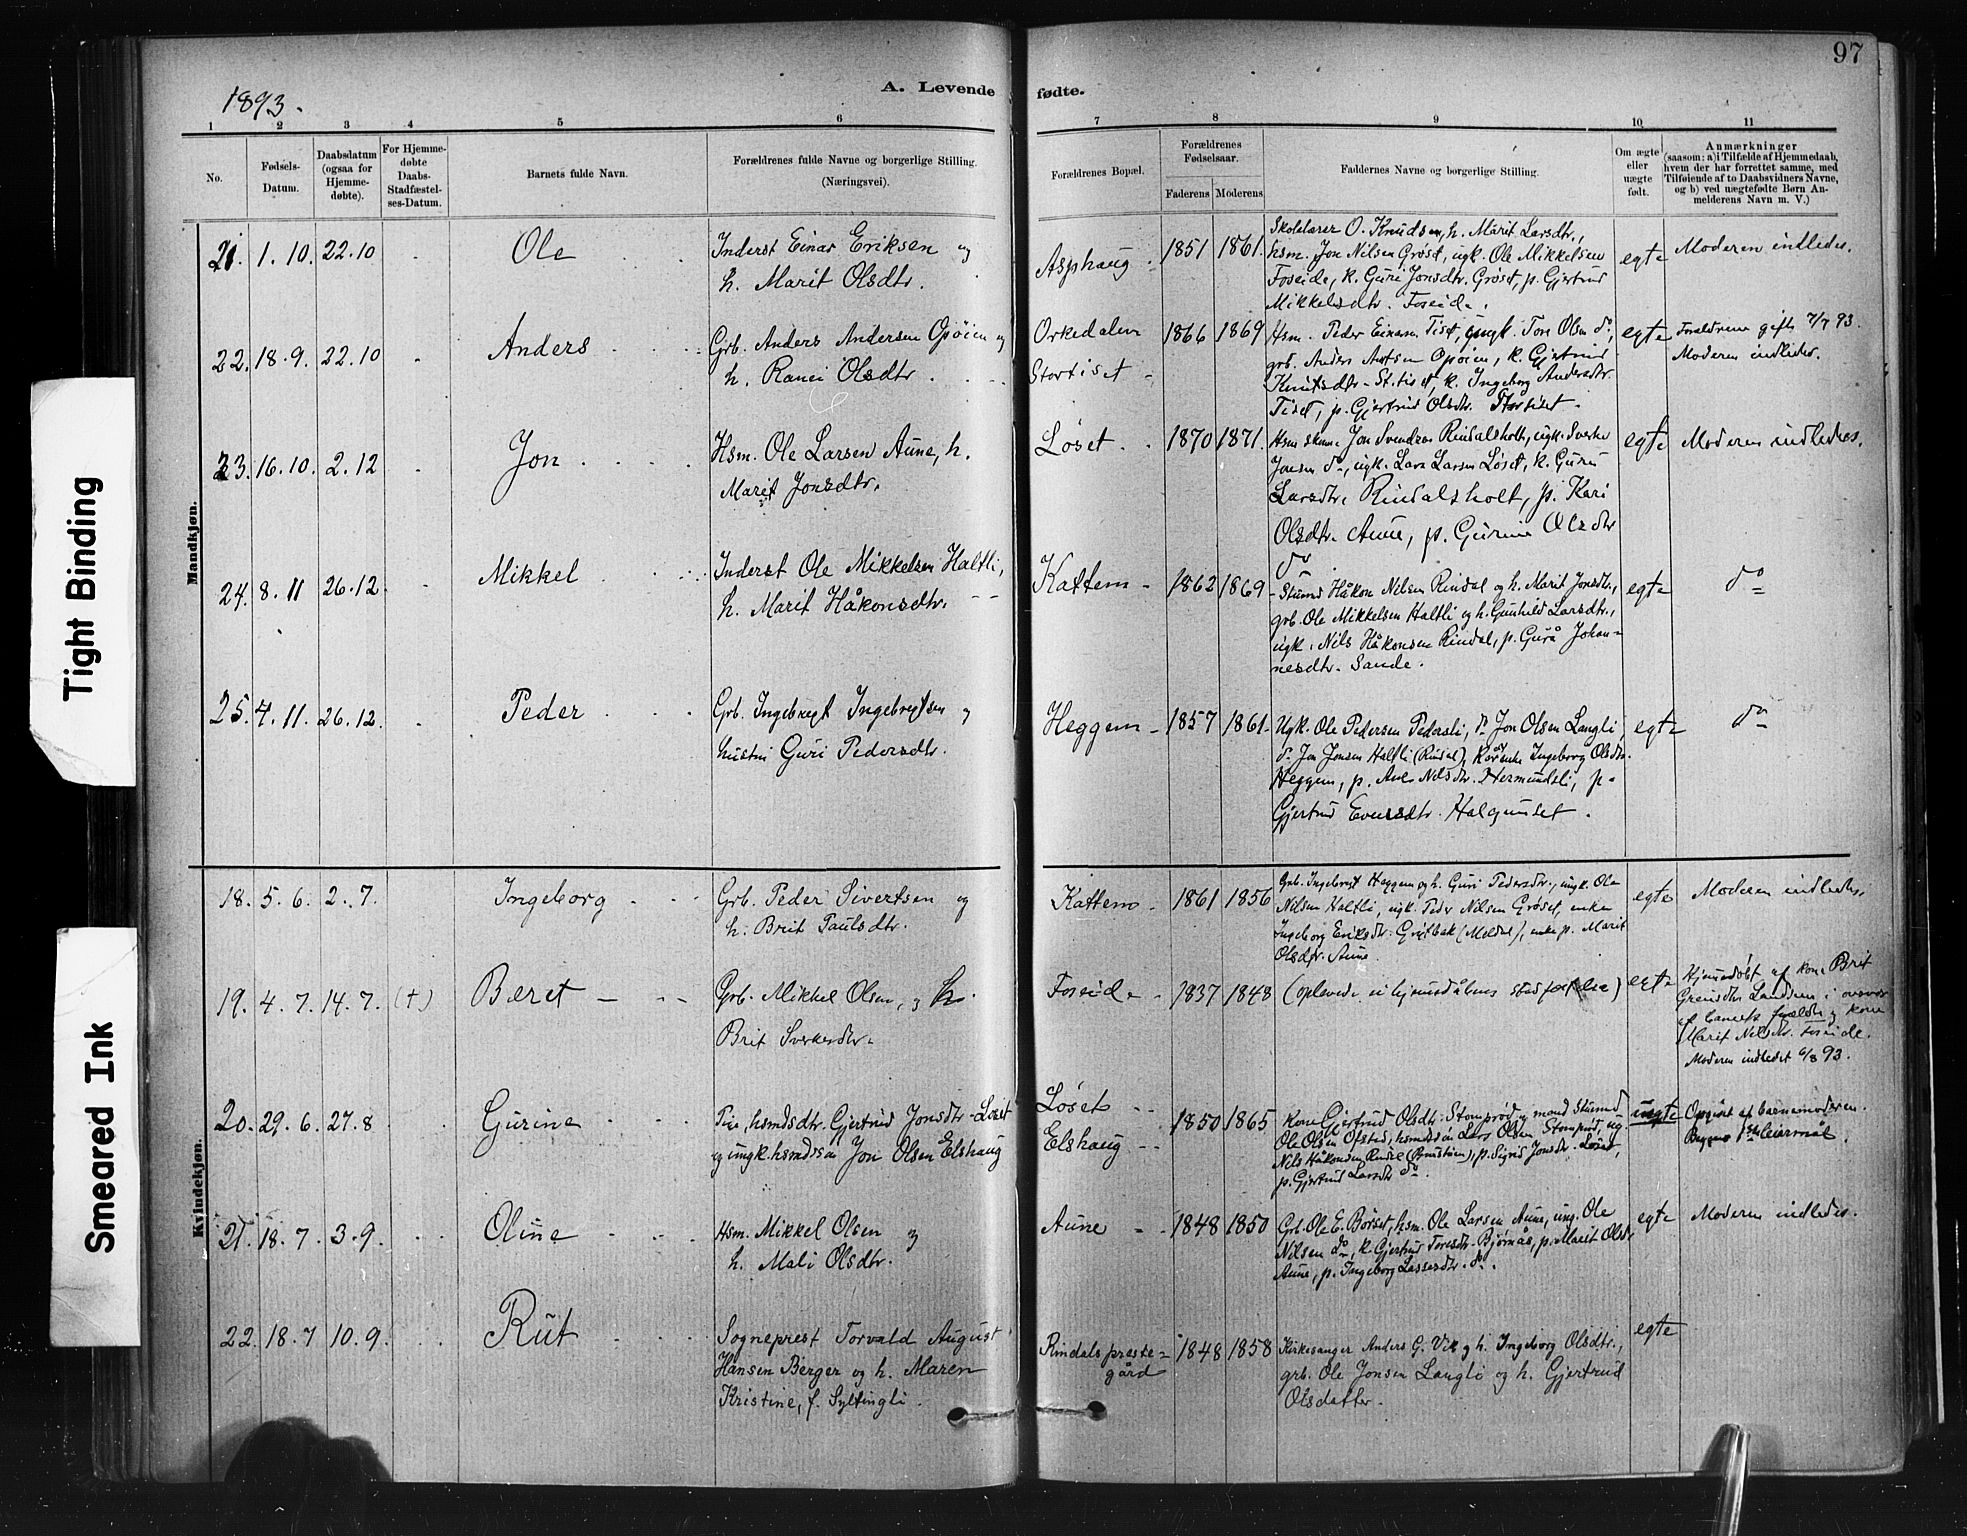 97
1893.
A. Levende fødte.
1 2 3 4 5 6 7 8 9 10 11
No.
Fødsels-
Datum.
Daabsdatum
(ogsaa for
Hjemme-
døbte).
For Hjemme-
døbte
Daabs-
Stadfæstel-
ses-Datum.
Barnets fulde Navn.
Forældrenes fulde Navne og borgerlige Stilling.
(Næringsvei).
Forældrenes Bopæl.
Forældrenes
Fødselsaar.
Faderens Moderens
Faddernes Navne og borgerlige Stilling.
Om ægte
eller
uægte
født.
Anmærkninger
(saasom: a) i Tilfælde af Hjemmedaab,
hvem der har forrettet samme, med
Tilføiende af to Daabsvidners Navne,
og b) ved uægtefødte Børn An-
melderens Navn m. V.)
Mandkjøn.
21. 1. 10. 22.10
Ole
Inderst Einar Eriksen og
h. Marit Olsdtr.
Asphaug
1851 1861.
Skolelærer O. Knudsen, h. Marit Larsdtr.,
hsm. Jon Nilsen Grøset, ugk. Ole Mikkelsen
Foseide, k. Guri Jonsdtr. Grøset, p. Gjertrud
Mikkelsdtr. Foseide.
egte
Moderen indledes.
22. 18.9. 22.10
Anders
Grb. Anders Andersen Opöien og
h. Ranei Olsdtr.
Orkedalen
Stortiset
1866 1869
Hsm. Peder Einarsen Tiset, ungk. Tore Olsen do,
grb. Anders Opöien, k. Gjertrud
Knutsdtr. St.tiset, k. Ingeborg Andersdtr.
Tiset, p. Gjertrud Olsdtr. Stortiset.
egte
Forældrene gifte 7/7 93.
Moderen indledes.
23. 16.10. 2.12
Jon
Hsm. Ole Larsen Aune, h.
Marit Jonsdtr.
Løset
1870 1871.
Jon Rindalsholt, ugk. Sverke
Jonsen do, ugk. Lars Larsen Løset, k. Guru
Larsdtr. Rindalsholt, p. Kari
Olsdtr. Aune, p. Gurine Olsdtr
do
egte
Moderen indledes.
24. 8.11 26.12
Mikkel
Inderst Ole Mikkelsen Haltli,
h. Marit Håkonsdtr.
Kattem
1862 1869
Håkon Nilsen Rindal og h. Marit Jonsdtr.,
grb. Ole Mikkelsen Haltli og h. Gunhild Larsdtr.,
ugk. Nils Håkonsen Rindal, p. Gurå Johan-
nesdtr. Sande.
egte
do
25. 4.11. 26.12.
Peder
Grb. Ingebregt Ingebregtsen og
hustru Guri Pedersdtr.
Heggem
1857 1861.
Ugk. Ole Pedersen Pedersli, do Jon Olsen Langli,
do Jon Jonsen Haltli (Rindal), Ingeborg Olsdtr.
Heggem, p. Ane Nilsdtr. Hermundsli, p.
Gjertrud Evensdtr. Halgunset.
egte
do
Kvindekjøn.
18. 5.6. 2.7.
Ingeborg
Grb. Peder Sivertsen og
h. Brit Paulsdtr.
Kattem
1861 1856
Grb. Ingebregt Heggem og h. Guri Pedersdtr., ungk. Ole
Nilsen Haltli, ugk. Peder Nilsen Grøset, enke
Ingeborg Eriksdtr. Grytbak (Meldal), p. Marit
Olsdtr. Aune
egte
Moderen indledes.
19. 4.7. 14.7. (†)
Beret
Grb. Mikkel Olsen, og h.
Brit Sverkesdtr.
Foseide
1837 1848
(oplevede ei hjemmedåbens stadfæstelse)
egte
Hjemmedøbt af kone Brit
i
af barnets og kone
Marit Nilsdtr. Foseide.
Moderen indledet 6/8 93.
20. 29.6. 27.8
Gurine
Pige, hsmdsdtr. Gjertrud Jonsdtr. Løset
og ungk. hsmdssøn Jon Olsen Elshaug
Løset
Elshaug
1850 1865
Kone Gjertrud Olsdtr. Stomprød og mand
Ole Olsen Ofsted, hsmdssøn Lars Olsen Stomprød, ug.
Nils Håkonsen Rindal, p. Sigrid Jonsdtr. Løset,
p. Gjertrud Larsdtr do
uegte
Opgivet af barnemoderen.
Begges leiermål.
21. 18.7. 3.9.
Oline
Hsm. Mikkel Olsen og
h. Mali Olsdtr.
Aune
1848 1850
Grb. Ole E. Børset, hsm. Ole Larsen Aune, ung. Ole
Nilsen do, k. Gjertrud Toresdtr. Bjørnås, p. Marit Olsdtr.
Aune, p. Ingeborg Lassesdtr. do.
egte
Moderen indledes.
22. 18.7 10.9.
Rut
Sogneprest Torvald August
Hansen Berger og h. Maren
Kristine, f. Syltingli.
Rindals preste-
gård
1848 1858
Kirkesanger Anders G. Vik og h. Ingeborg Olsdtr.,
grb. Ole Jonsen Langli og h. Gjertrud
Olsdatter.
egte
Tight Binding
Smeared Ink